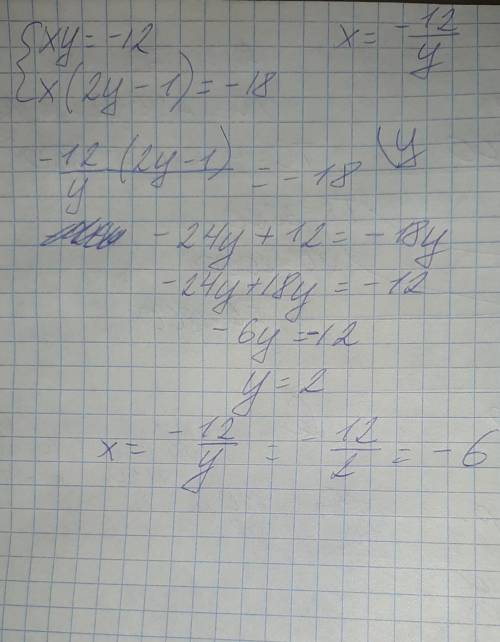 {xy = -12     x = -12/y
{x(2y - 1) = -18
-12(2y - 1)/y = -18 (y
-24y + 12 = -18y
-24y + 18y = -12
-6y = -12
y = 2
x = -12/y = -12/2 = -6